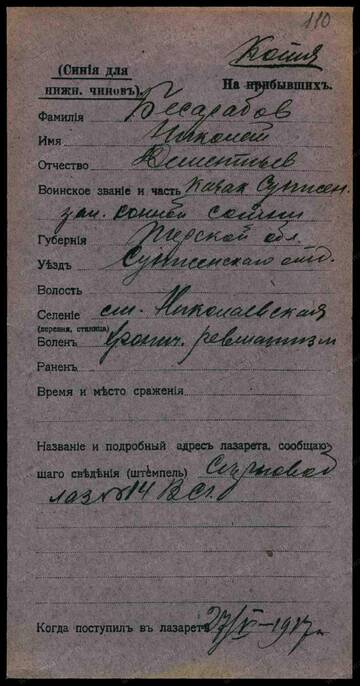 110
Копия
(Синія для нижн. чиновъ).
На прибывшихъ.
Фамилія Бесарабов
Имя Николай
Отчество Дементьев
Воинское званіе и часть казак Сунжен.
зап. конной сотни
Губернія Терской обл.
Уѣздъ Сунженскаго отд.
Волость
Селеніе ст. Николаевская
(деревня, станица)
Боленъ хронич. ревматизм
Раненъ
Время и мѣсто сраженія
Названіе и подробный адресъ лазарета, сообщаю-
щаго свѣдѣнія (штемпель)
лаз № 14 В.С.
Когда поступилъ въ лазаретъ 27/X—1917 г.